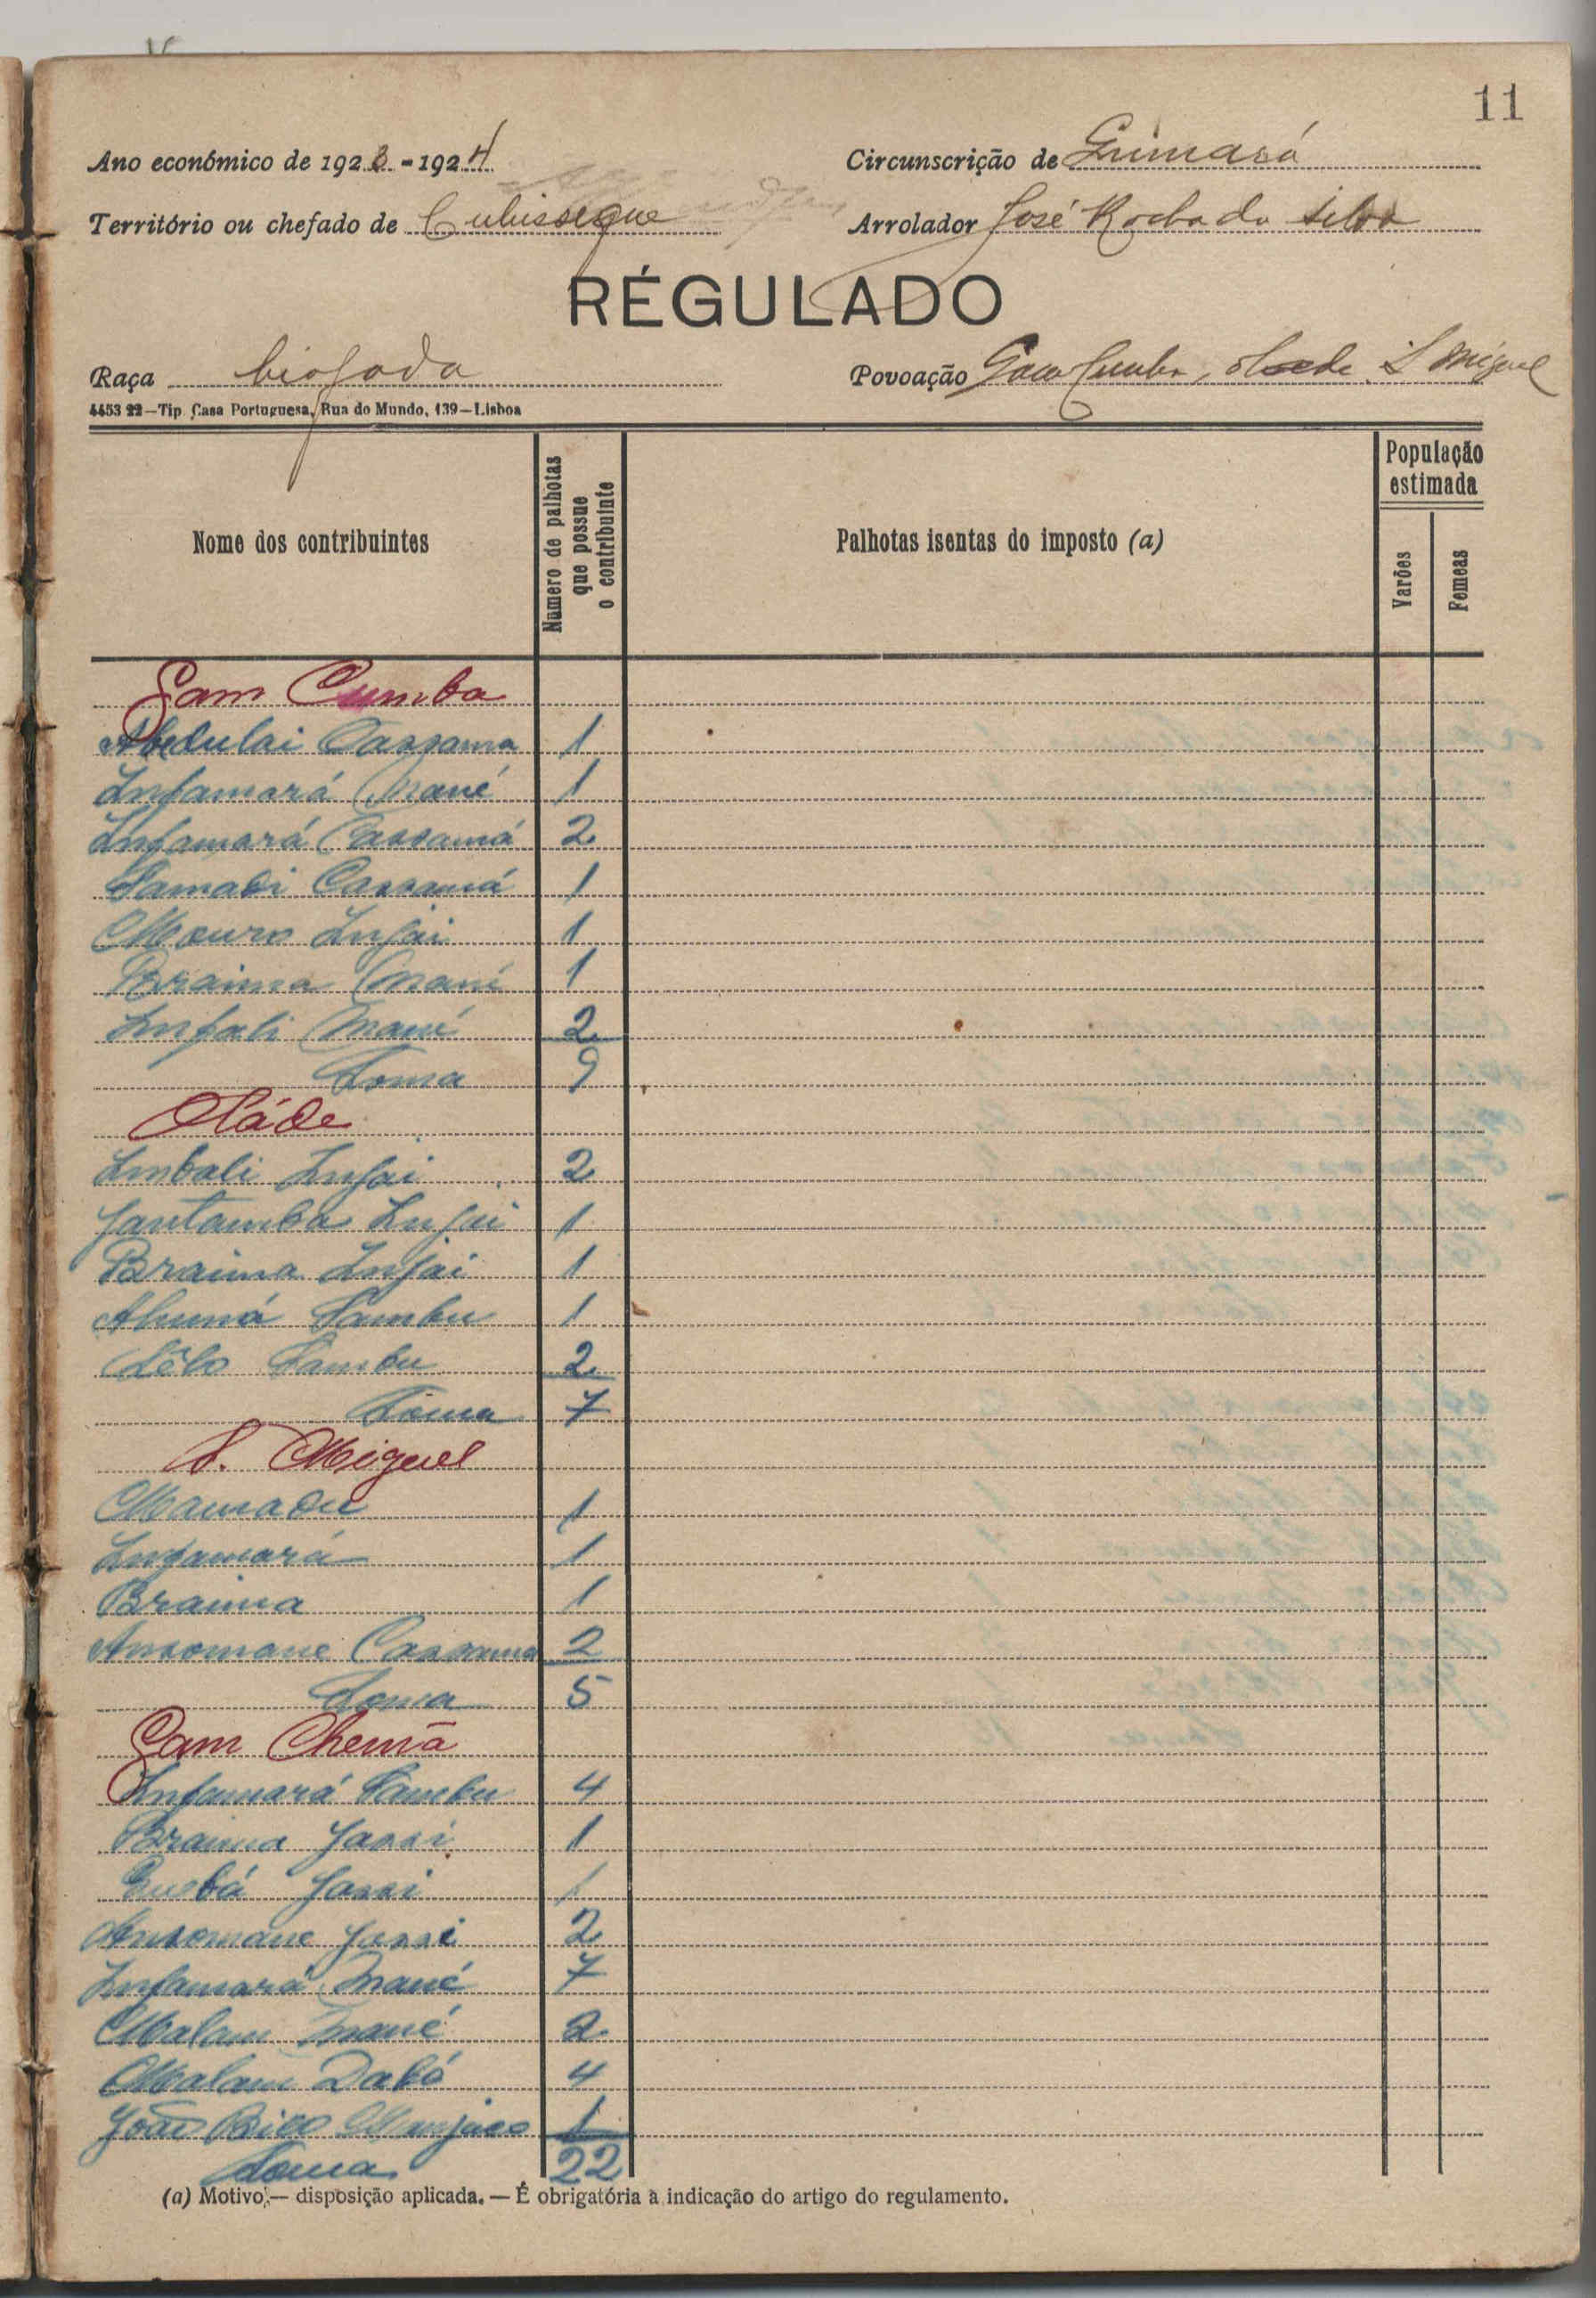 11
Ano económico de 1923-1924
Circunscrição de
Território ou chefado de Cubisseque
Arrolador José Rocha da Silva
RÉGULADO
Raça biafada
Povoação Gam Cumba, S Miguel
4453 22—Tip. Casa Portuguesa, Rua do Mundo, 139—Lisboa
Nome dos contribuintes
Numero de palhotas que possue o contribuinte
Palhotas isentas do imposto (a)
População estimada
Varões
Femeas
Gam Cumba
Abdulai Cassama 1
Infamará Mané 1
Infamará Cassamá 2
Samadi Cassamá 1
Mouro Injai 1
Braima Mané 1
Infali Mané 2
Soma 9
Oláde
Imbali Injai 2
Jantamba Injai 1
Braima Injai 1
Alumá Sambu 1
Lêlo Sambu 2
Soma 7
S. Miguel
Mamadu 1
Infamará 1
Braima 1
Ansomane Cassama 2
Soma 5
Gam Chemã
Infamará Sambu 4
Braima Jassi 1
Jassi 1
Ansomane Jassi 2
Infamará Mané 7
Malam Mané 2
Malam Dabó 4
João Bico Manjaco 1
Soma 22
(a) Motivo — disposição aplicada. — É obrigatória a indicação do artigo do regulamento.